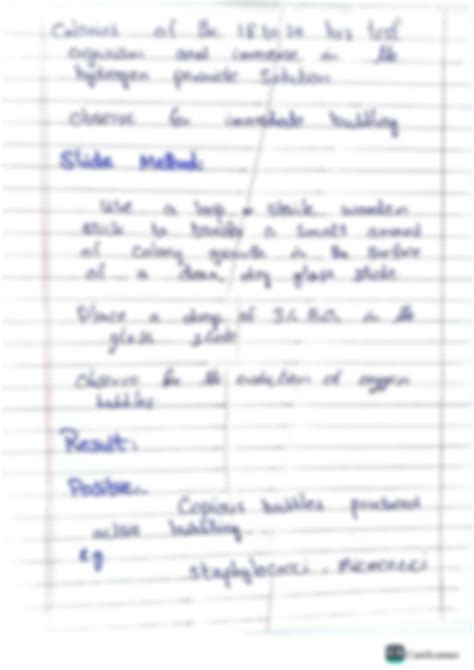 Colonies of the 18 to 24 hrs test
organism and immerse in the
hydrogen peroxide solution
Observe for immediate bubbling
Slide Method:
Use a loop or sterile wooden
stick to transfer a small amount
of colony growth in the surface
of a clean, dry glass slide
Place a drop of 3% H2O2 in the
glass slide
Observe for the evolution of oxygen
bubbles
Result:
Positive:
Copious bubbles produced
active bubbling
eg
Staphylococci, Micrococci
CamScanner